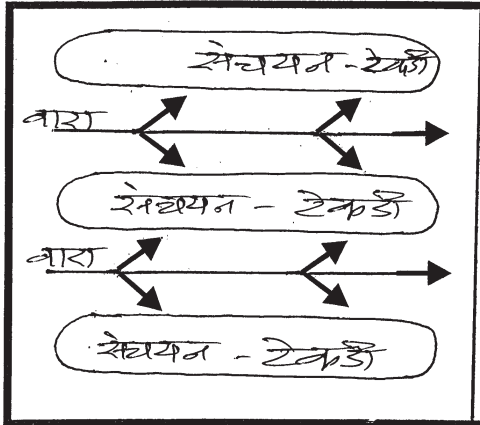 संचयन - टेकडी
वारा
संचयन - टेकडी
वारा
संचयन - टेकडी